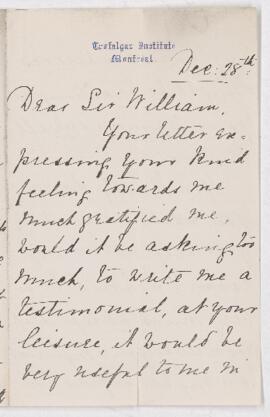 Trafalgar Institute
Montreal.
Dec: 28th:
Dear Sir William,
Your letter ex-
pressing your kind
feeling towards me
much gratified me,
would it be asking too
much, to write me a
testimonial, at your
leisure, it would be
very useful to me in